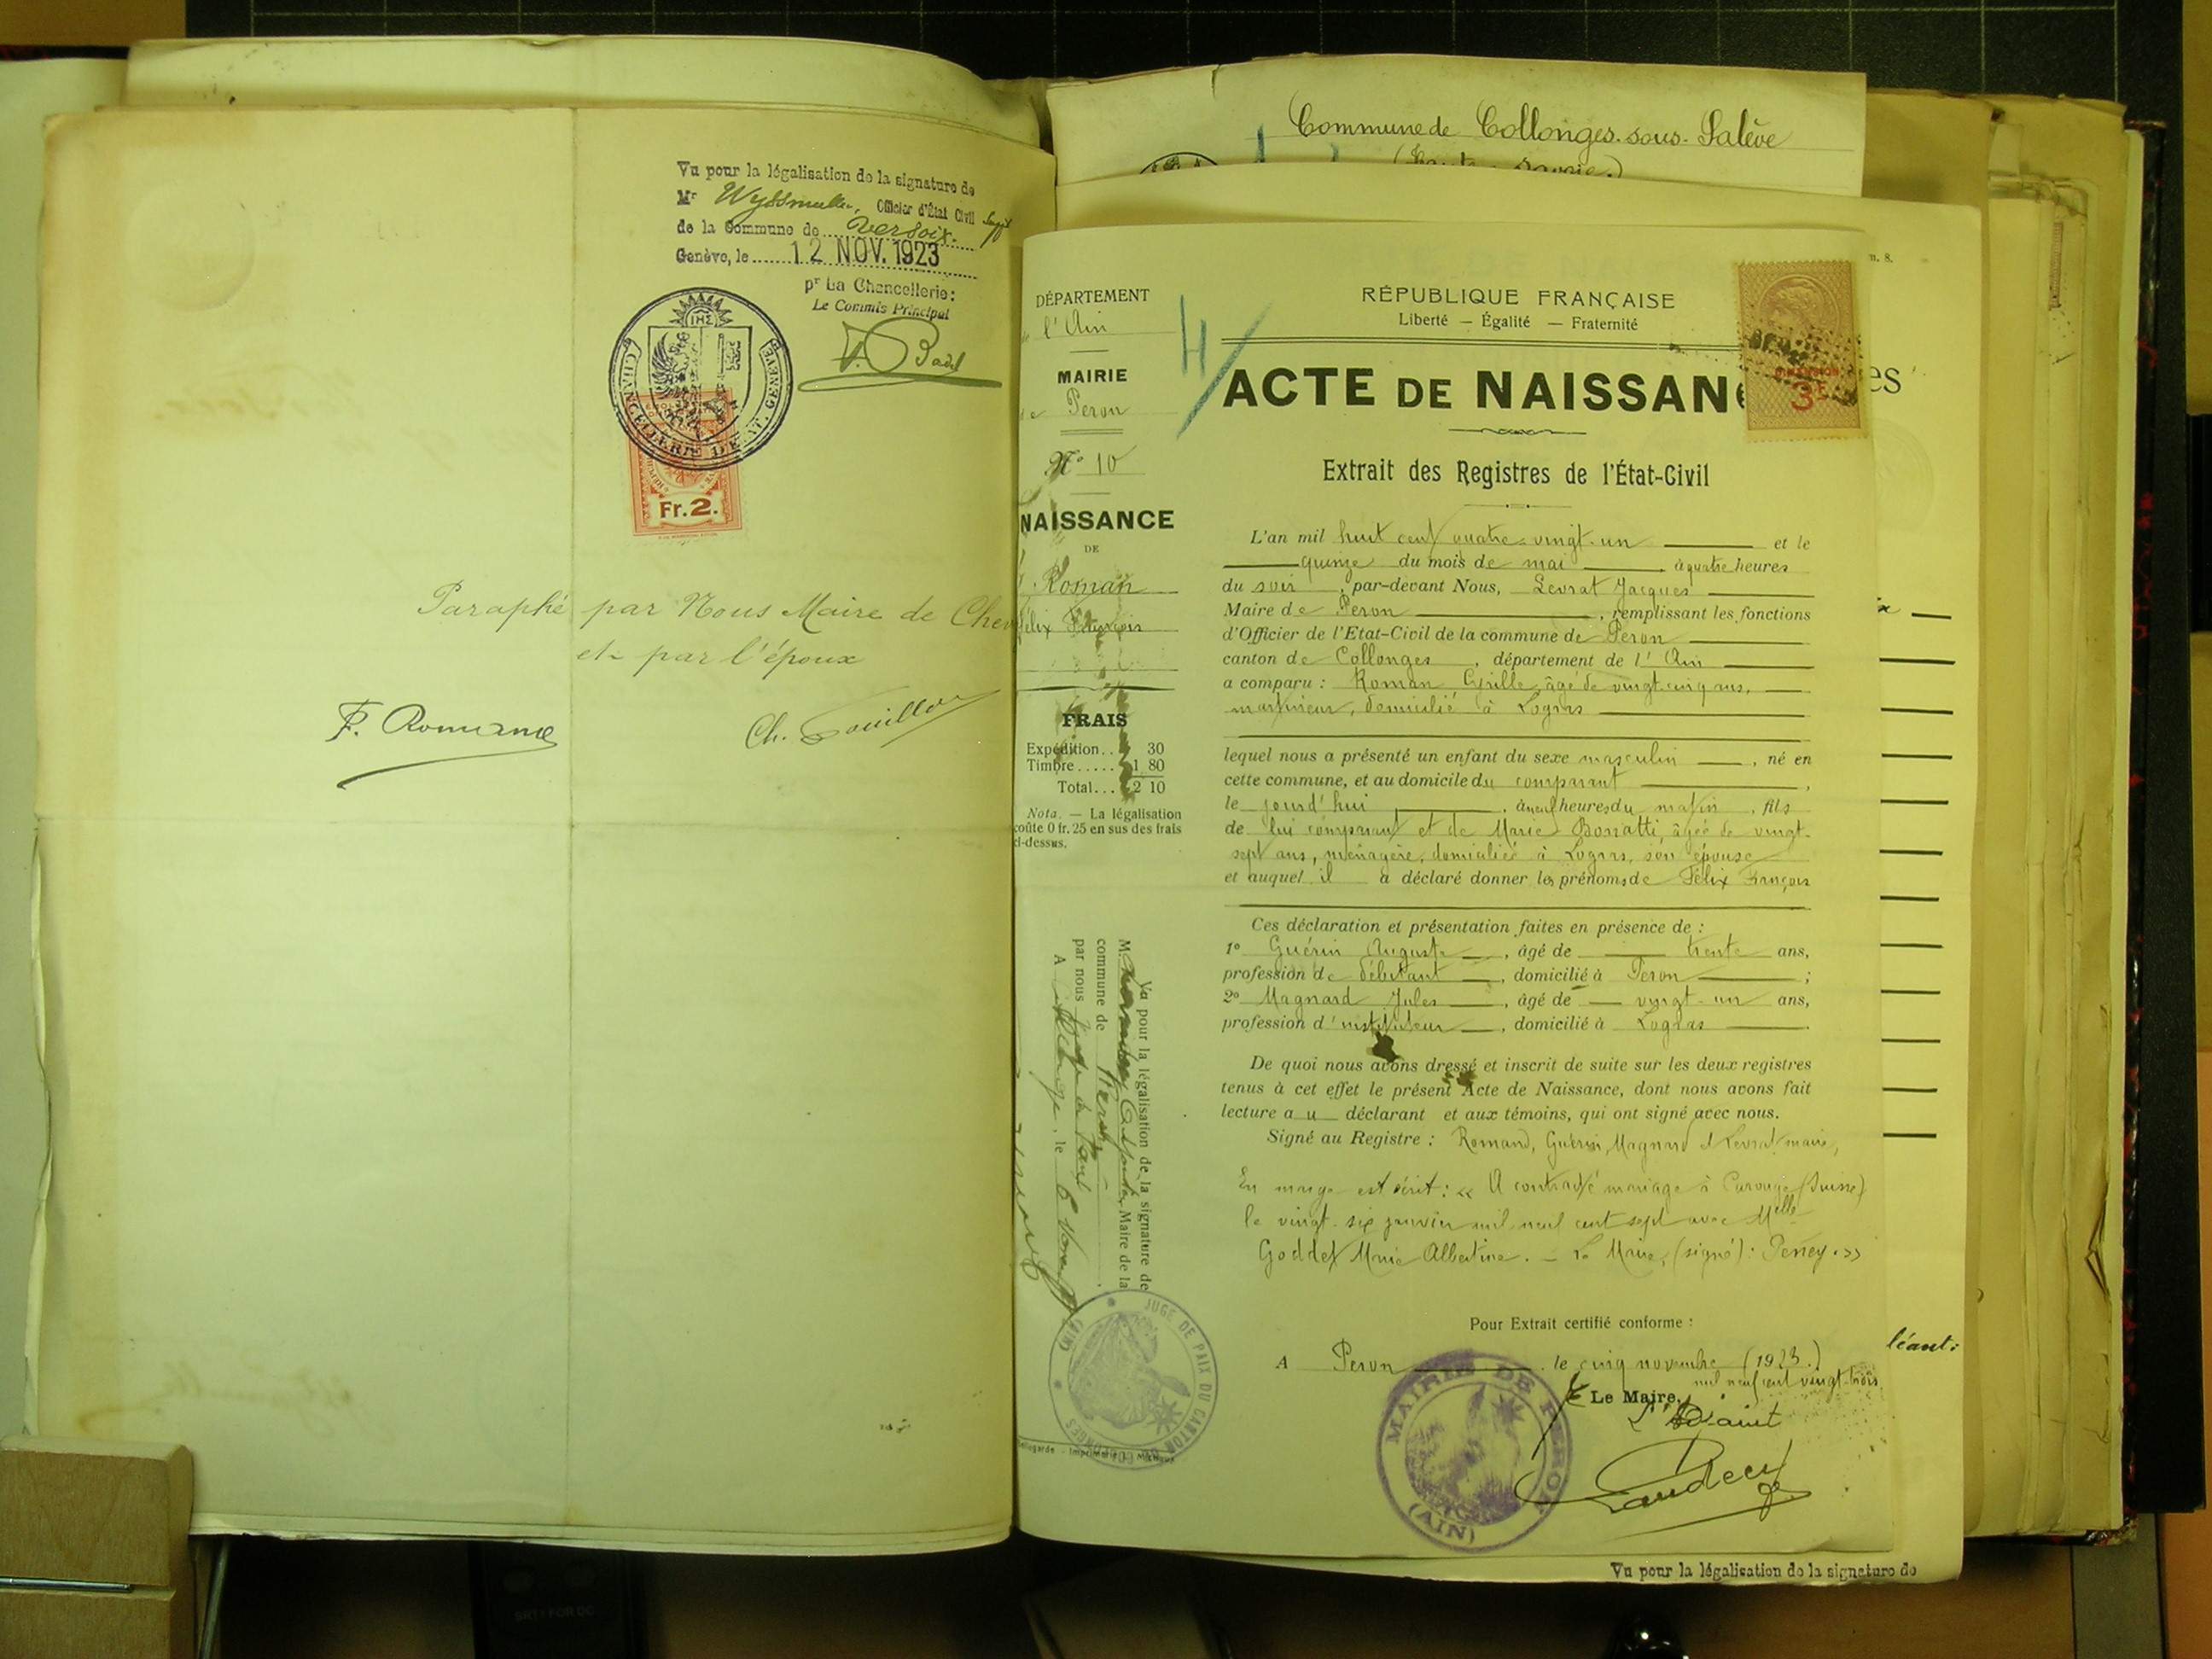 Vu pour la légalisation de la signature de
Mr Wyssmuller, Officier d'État Civil Suppt
de la Commune de Versoix.
Genève, le 12 NOV. 1923
pr La Chancellerie:
Le Commis Principal
CHANCELLERIE D'ÉTAT GENÈVE
Fr. 2.
Paraphé par Nous Maire de Chev
et par l'époux
F. Romand
Ch.
Commune de Collonges-sous-Salève
(Haute-Savoie)
n. 8.
DÉPARTEMENT
de l'Ain
MAIRIE
de Peron
N° 10
NAISSANCE
DE
Roman
Félix François
FRAIS
Expédition.. 30
Timbre..... 1 80
Total... 2 10
Nota. — La légalisation
coûte 0 fr. 25 en sus des frais
ci-dessus.
Vu pour la légalisation de la signature de
M. Adjoint, Maire de la
commune de Peron
par nous Juge de Paix
A Collonges, le 6
JUGE DE PAIX DU CANTON DE COLLONGES (AIN)
RÉPUBLIQUE FRANÇAISE
Liberté — Égalité — Fraternité
4/
3F
ACTE DE NAISSANC
es
Extrait des Registres de l'État-Civil
L'an mil huit cent quatre-vingt-un et le
quinze du mois de mai à quatre heures
du soir, par-devant Nous, Levrat Jacques
Maire de Peron, remplissant les fonctions
d'Officier de l'Etat-Civil de la commune de Peron
canton de Collonges, département de l'Ain
a comparu : Roman Cyrille, âgé de vingt-cinq ans,
domicilié à Logras
lequel nous a présenté un enfant du sexe masculin, né en
cette commune, et au domicile du comparant,
le jourd'hui, à neuf heures du matin, fils
de lui comparant et de Marie Bonatti, âgée de vingt-
sept ans, ménagère, domiciliée à Logras, son épouse
et auquel il a déclaré donner les prénoms de Félix François
Ces déclaration et présentation faites en présence de :
1° Guérin Auguste, âgé de trente ans,
profession de débitant, domicilié à Peron ;
2° Magnard Jules, âgé de vingt-un ans,
profession d'instituteur, domicilié à Logras.
De quoi nous avons dressé et inscrit de suite sur les deux registres
tenus à cet effet le présent Acte de Naissance, dont nous avons fait
lecture au déclarant et aux témoins, qui ont signé avec nous.
Signé au Registre : Romand, Guérin, Magnard et Levrat maire,
En marge est écrit : « A contracté mariage à Carouge (Suisse)
le vingt-six janvier mil neuf cent sept avec Melle
Goddet Marie Albertine. — Le Maire, (signé) : Perrey. »
Pour Extrait certifié conforme :
A Peron, le cinq novembre (1923.)
mil neuf cent vingt-trois
Le Maire,
L'Adjoint
MAIRIE DE PERON (AIN)
léant:
Vu pour la légalisation de la signature de